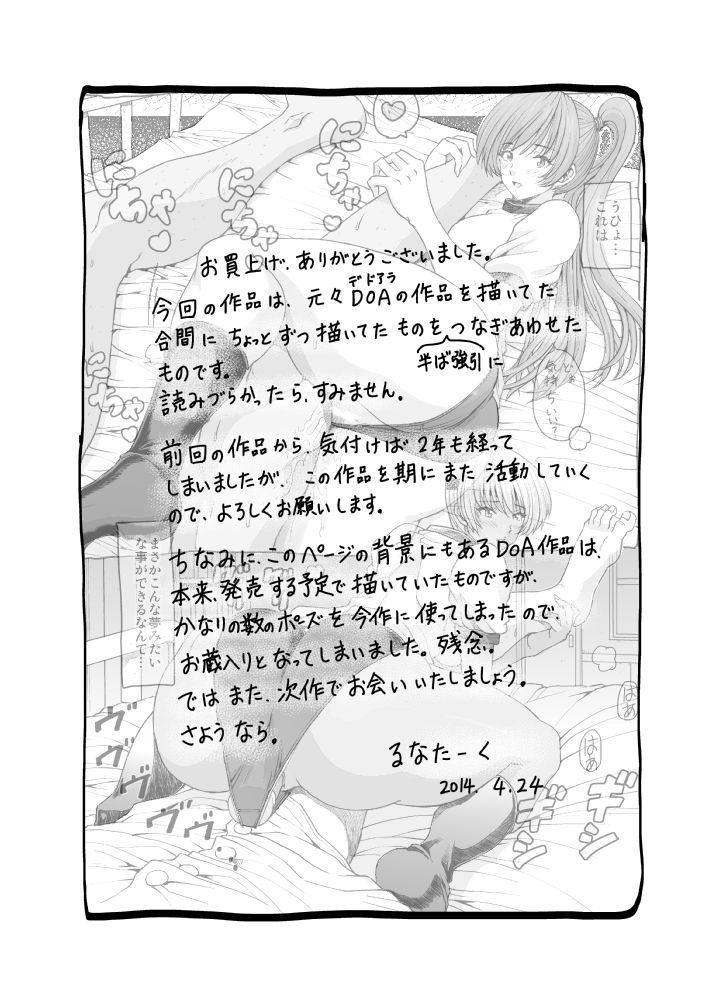 お買上げ、ありがとうございました。
デドアラ
今回の作品は、元々DOAの作品を描いてた
合間にちょっとずつ描いてたものをつなぎあわせた
半ば強引に
ものです。
読みづらかったら、すみません。
前回の作品から、気付けば2年も経って
しまいましたが、この作品を期にまた活動していく
ので、よろしくお願いします。
ちなみに、このページの背景にもあるDOA作品は、
本来、発売する予定で描いていたものですが、
かなりの数のポーズを今作に使ってしまったので、
お蔵入りとなってしまいました。残念。
ではまた、次作でお会いいたしましょう。
さようなら。
るなたーく
2014. 4.24
うひょ…
これは
気持ちいい?
まさかこんな夢みたい
な事ができるなんて…
にちゃ
にちゃ
にちゃ
はあ
はぁ
ヴヴ
ヴヴヴ
ギシ
ギシ